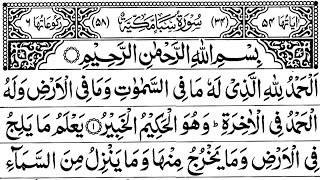 اٰیَاتُهَا ۵۴ (۳۴) سُوْرَةُ سَبَاٍ مَّكِّیَّةٌ (۵۸) رُكُوْعَاتُهَا ۶
بِسْمِ اللّٰهِ الرَّحْمٰنِ الرَّحِیْمِ
اَلْحَمْدُ لِلّٰهِ الَّذِیْ لَهٗ مَا فِی السَّمٰوٰتِ وَمَا فِی الْاَرْضِ وَلَهُ
الْحَمْدُ فِی الْاٰخِرَةِ ؕ وَهُوَ الْحَكِیْمُ الْخَبِیْرُ ۝۱ یَعْلَمُ مَا یَلِجُ
فِی الْاَرْضِ وَمَا یَخْرُجُ مِنْهَا وَمَا یَنْزِلُ مِنَ السَّمَآءِ